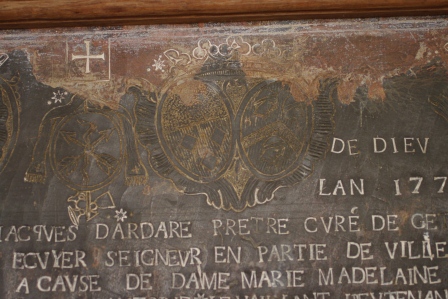 DE DIEU
LAN 177
IACQVES DARDARE PRETRE CVRÉ DE CE
ECVYER SEIGNEVR EN PARTIE DE VILLE
A CAVSE DE DAME MARIE MADELAINE